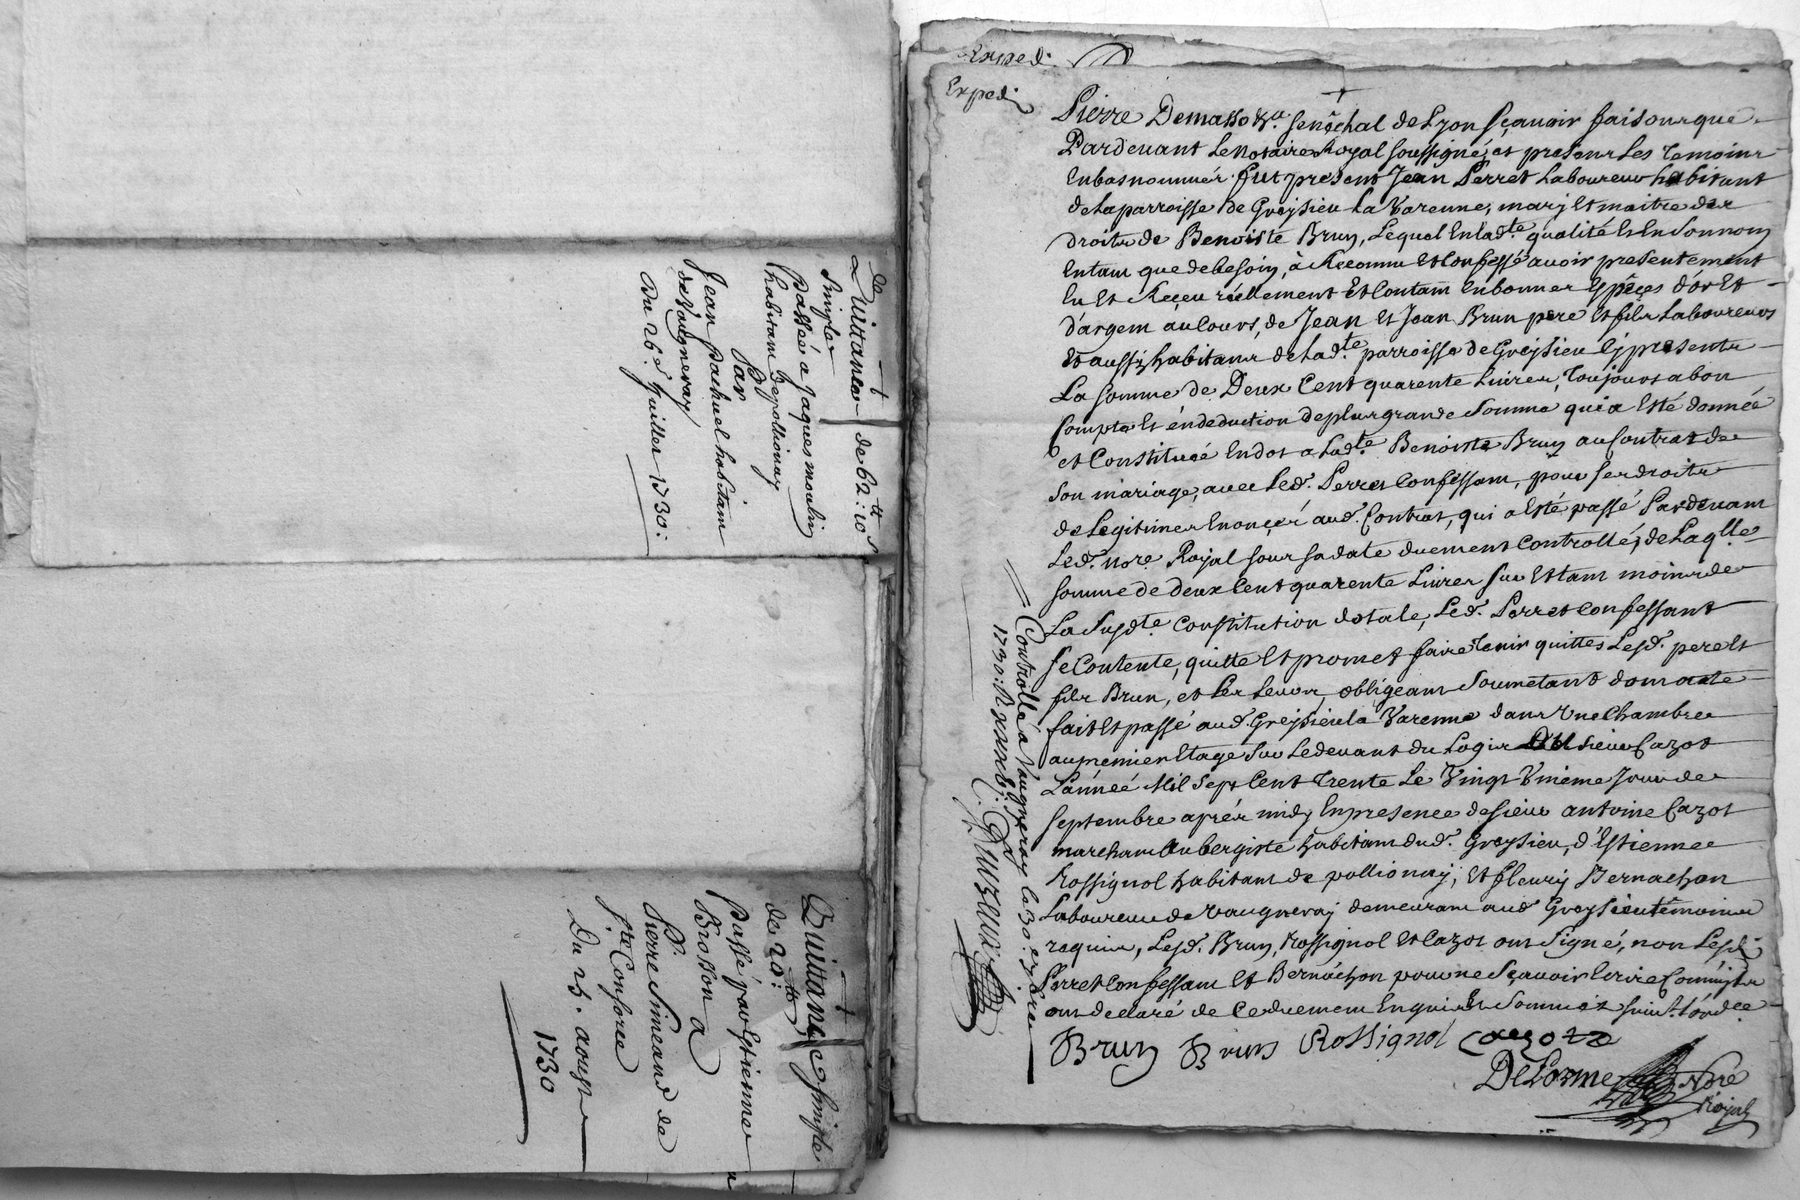 de
Quittance – de 62ᵗᵗ: 10ˢ
Simple
Passée a Jaques moulin
habitant de pollionay
Par
Jean Pachuel habitant
de Vaugneray
Du 26ᵉ Juillet 1730:
Quittance Simple
de 20:ᵗᵗ
Passé par Estienne
Brosson a
Sʳ.
Pierre Simeand de
Sᵗᵉ Consorce
Du 25. aoust
1730
Exped.
Exped.
Pierre Demasso &ᵃ. senêchal de Lyon sçavoir faisons que
Pardevant Le Notaire Royal soussigné, et presens Les temoins
En bas nommés. fut present Jean Perret Laboureur habitant
de La parroisse de Greysieu La Varenne, mary Et maitre des
droits de Benoiste Brun, Lequel En lad.ᵗᵉ qualité Et En son nom
En tant que de besoin, à Reconnu Et Confessé avoir presentement
Eu Et Reçeu réellement Et Contant En bonnes Espêçes d'or Et
d'argent au Cours, de Jean Et Jean Brun pere Et fils Laboureurs
Et aussy habitans de Lad.ᵗᵉ parroisse de Greysieu Cy presents
La somme de Deux Cent quarente Livres, toujours a bon
Compte Et en deduction de plus grande Somme qui a Esté donnée
et Constituée En dot a Lad.ᵗᵉ Benoiste Brun au Contrat de
son mariage, avec Led. Perret Confessant, pour ses droits
de Legitimes Enonçés aud. Contrat, qui a Esté passé Pardevant
Led. Nore. Royal sous sa date duement Controllé; de Laqlle
somme de deux Cent quarente Livres sur Et tant moins de
La Susd.ᵗᵉ Constitution dotale, Led. Perret Confessant
se Contente, quitte Et promet faire tenir quittes Lesd. pere Et
fils Brun, et Les Leurs, obligeant Soumetant dont acte
fait Et passé aud. Greysieu la Varenne dans Une Chambre
au premier Etage sur Le devant du Logis du sieur Cazot
L'année Mil Sept Cent trente Le Vingt Unieme Jour de
Septembre aprés midy En presence de sieur antoine Cazot
marchant aubergiste habitant dud. Greysieu, d'Estienne
Rossignol habitant de pollionay, Et fleury Bernachon
Laboureur de Vaugneray demeurant aud Greysieu têmoins
requis, Lesd. Brun, Rossignol Et Cazot ont Signé, non Lesd.
Perret Confessant Et Bernachon pour ne Sçavoir Ecrire Comme ils
ont declaré de Ce duement Enquis Et Sommez suivᵗ. L'ordce.
Brun Brun Rossignol Cazot
Delorme Nore
Royal
Controllé a Vaugneray le 30: 7bre
1730: